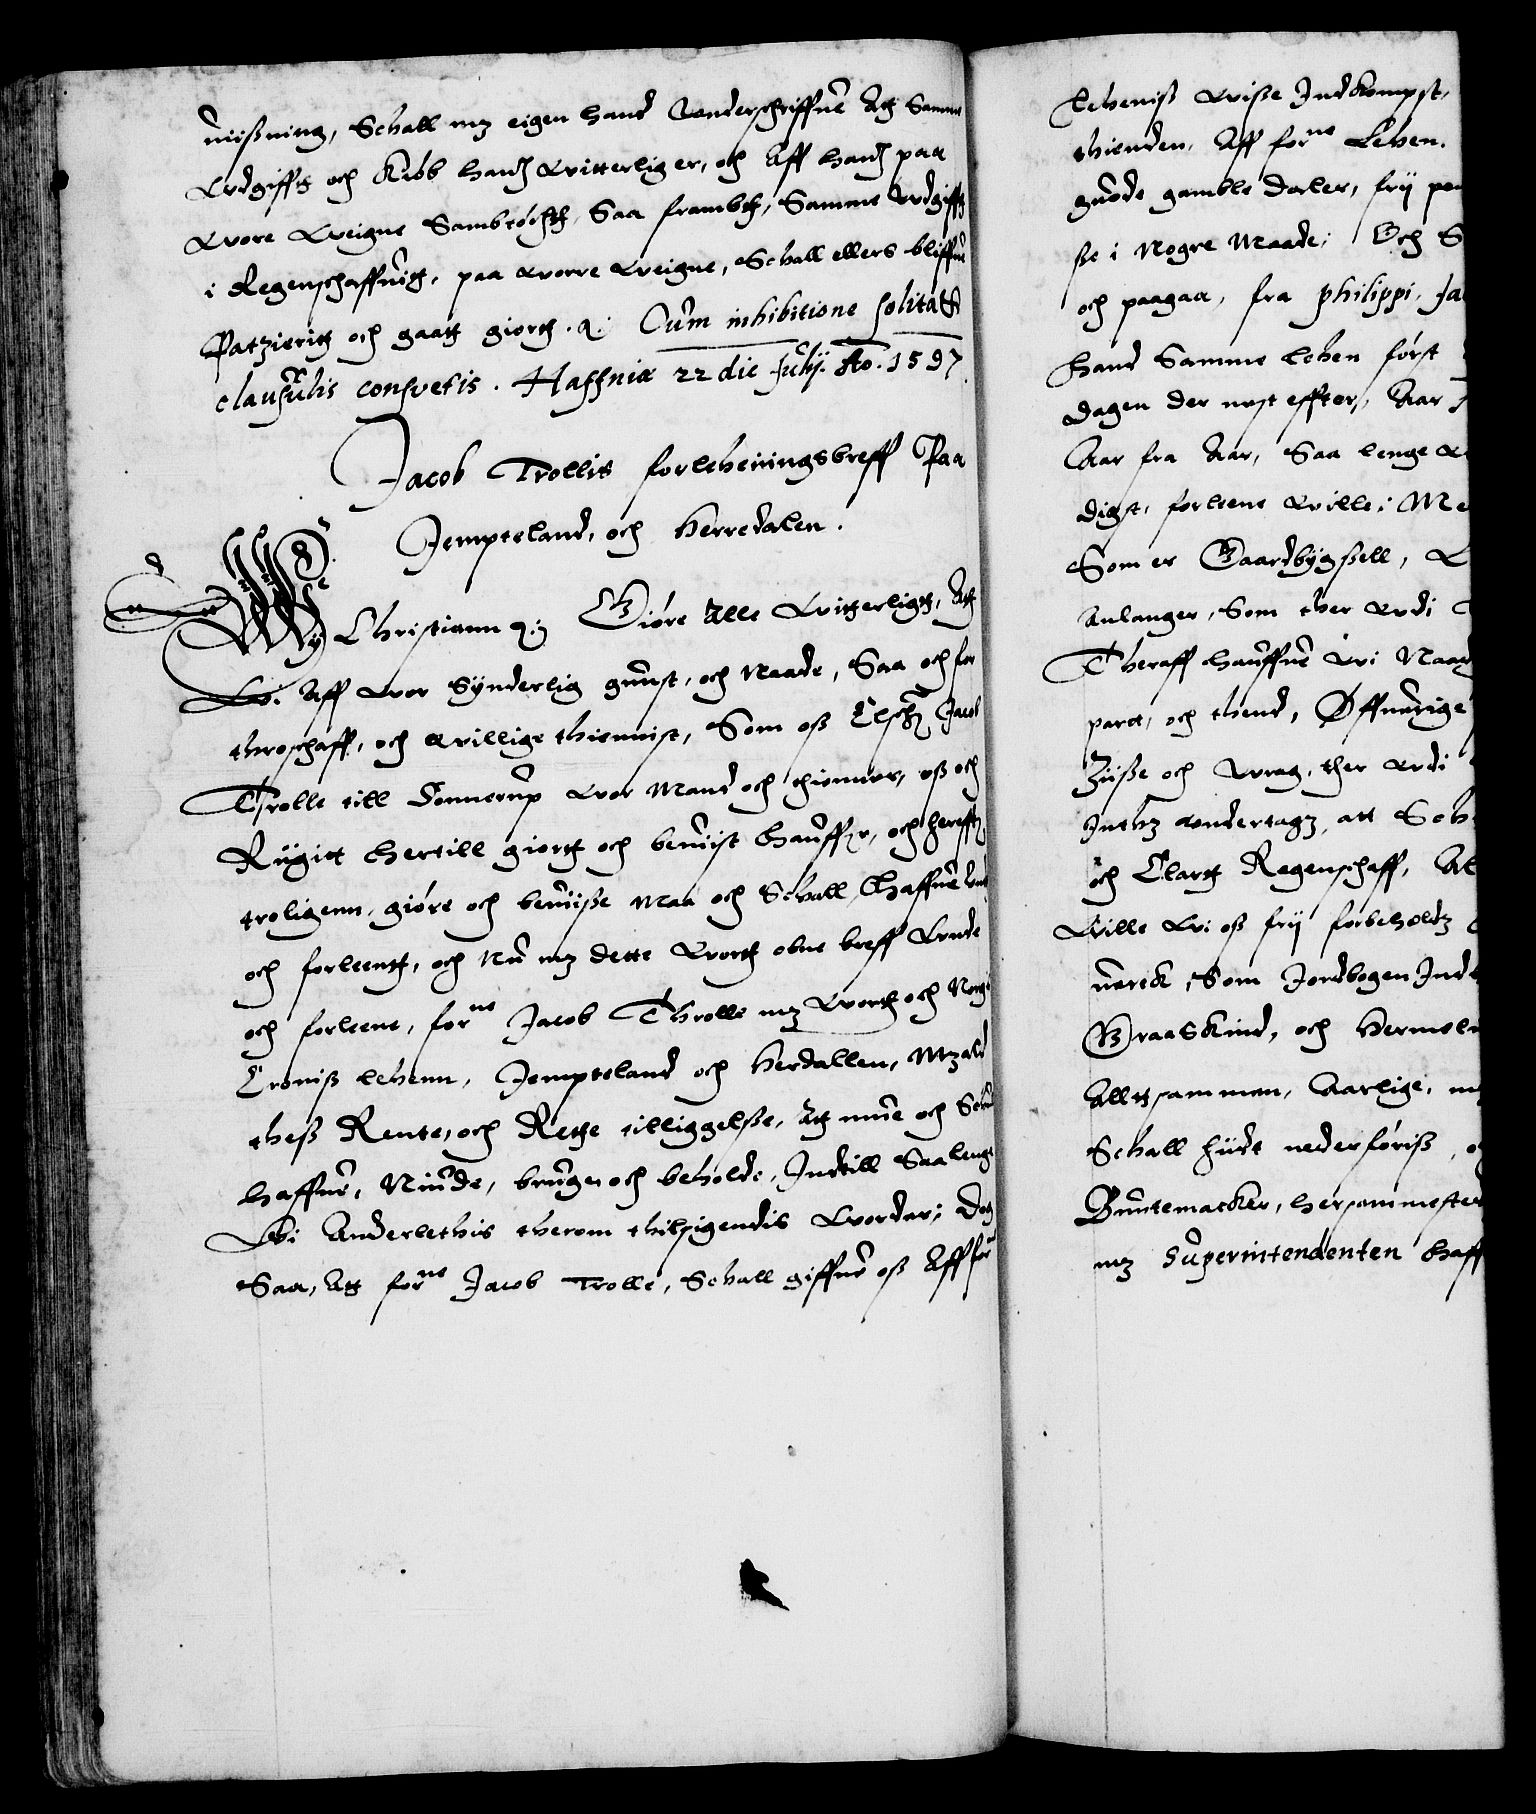 uiißning, Schall mz eigen hand Vonderschriffuit Att Samme
Vdgifft och Kiøb hans Vitterlig er, och Aff hans paa
Vore Veigne Samtøcht, Saa frambt, Samme Vdgifft
i Regenschaffuit, paa Vorre Veigne, Schall ellers bliffue
Patzierit och gaatt giort. &. Cum inhibitione solita &
clausulis consvetis. Haffniæ 22 die Julij. Ao. 1597.
Jacob Trollis forleheningsbreff Paa
Jempteland, och Herredalen.
Wy Christiann &: Giøre Alle Vitterligtt, Att
Vi Aff Vor Synderlig gunst, och Naade, Saa och for
throschaff, och Villige thiennist, Som oß Elsch: Jacob
Trolle till Connerup Vor Mand och thiener, oß och
Rigitt hertill giortt och beuiist haffr, och hereffter
troligenn, giøre och beuiiße Maa och Schall, Haffue Vndt
och forleentt, och Nu mz dette Vortt obne breff Vnde
och forleene, forne Jacob Throlle mz Vortt och Norgis
Croniß lehenn, Jempteland och Herdallen, Mz ald
theß Rente, och Rette tilliggelße, Att muue och Schulle
haffue, Niude, bruge, och beholde, Indtill Saalenge
Vi Anderlethis therom thilsigendis Vordar; Dog
Saa, Att forne Jacob Trolle, Schall giffue oß Aff forne
Leheniß Viße Indkompst,
thienden, Aff forne Lehen.
guode gamble daler, frij
ße i Nogre Maade; Och
och paagaa, fra Philippi, Ja
hand Samme lehen først
dagen der nest effter, Aar
Aar fra Aar, Saa lenge
digst, forleene Ville; Me
Som er Gaardbygßell,
Anlanger, Som ther Vdi
Theraff hauffue Vi Naad
part, och thend, Øffuerige
Ziiße och Vrag, ther Vdi
Inthz Vndertagz, att Sch
och Clart Regenschaff, Al
Ville Vi oß frij forbeholdz
uerck, Som Jordbogen Indh
Graaskind, och Hermelin
Alltsammen, Aarlige, m
Schall hiidt nederføriß,
Buntemacker, hersammested
mz Superintendenten haff